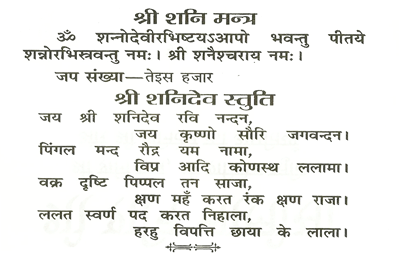 श्री शनि मन्त्र
ॐ शन्नोदेवीरभिष्टयऽआपो भवन्तु पीतये
शन्नोरभिस्त्रवन्तु नमः। श्री शनैश्चराय नमः।
जप संख्या—तेइस हजार
श्री शनिदेव स्तुति
जय श्री शनिदेव रवि नन्दन,
जय कृष्णो सौरि जगवन्दन।
पिंगल मन्द रौद्र यम नामा,
विप्र आदि कोणस्थ ललामा।
वक्र दृष्टि पिप्पल तन साजा,
क्षण महँ करत रंक क्षण राजा।
ललत स्वर्ण पद करत निहाला,
हरहु विपत्ति छाया के लाला।